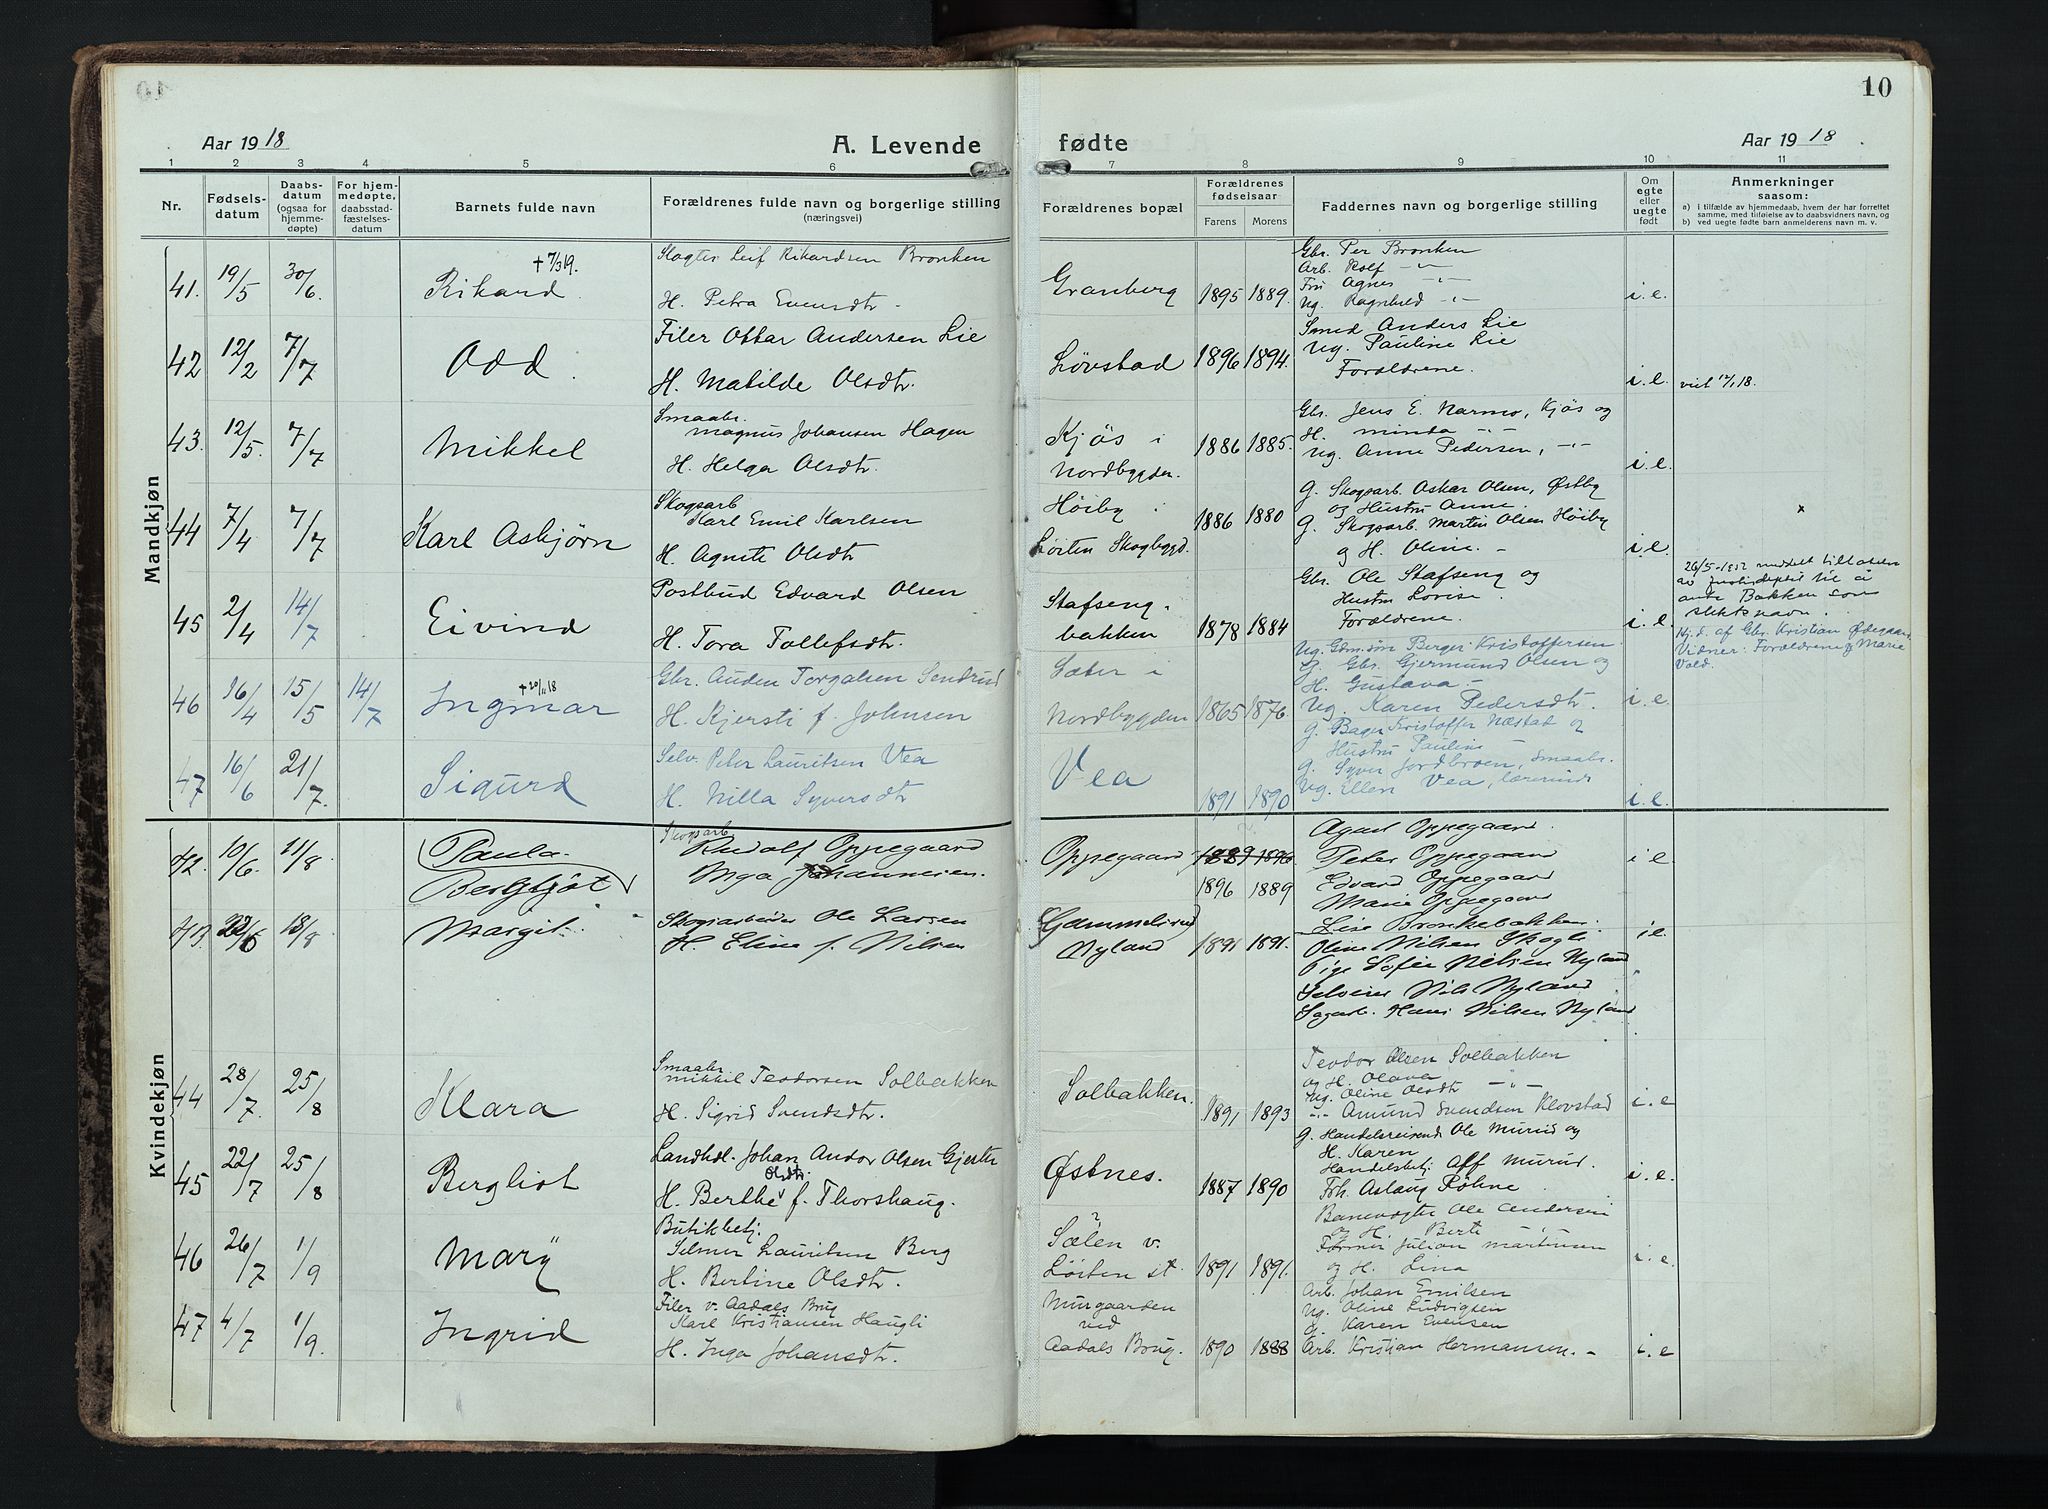 10
Aar 1918
A. Levende fødte
Aar 1918
1 2 3 4 5 6 7 8 9 10 11
Nr.
Fødsels-
datum
Daabs-
datum
(ogsaa for
hjemme-
døpte)
For hjem-
medøpte,
daabsstad-
fæstelses-
datum
Barnets fulde navn
Forældrenes fulde navn og borgerlige stilling
(næringsvei)
Forældrenes bopæl
Forældrenes
fødselsaar
Farens Morens
Faddernes navn og borgerlige stilling
Om
egte
eller
uegte
født
Anmerkninger
saasom:
a) i tilfælde av hjemmedaab, hvem der har forrettet
samme, med tilføielse av to daabsvidners navn, og
b) ved uegte fødte børn anmelderens navn m. v.
Mandkjøn
41. 19/5 30/6. Rikard † 7/3 19.
Leif Rikardsen Bronken
H. Petra Evensdtr.
Granberg 1895 1889.
Gbr. Per Bronken
Arb. Rolf -"-
Fru Agnes -"-
Ug. Ragnhild -"-
i. e.
42 12/2 7/7 Odd.
Filer Ottar Andersen Lie
H. Matilde Olsdtr.
Løvstad 1896 1894.
Smed Anders Lie
Ug. Pauline Lie
Forældrene.
i. e.
43. 12/5. 7/7 Mikkel
Smaabr.
Magnus Johansen Hagen
H. Helga Olsdtr.
Kjøs i
Nordbygden.
1886 1885.
Gbr. Jens E. Narmo, Kjøs og
H. Minda -"-
Ug. Anne Pedersen, -"-
i. e.
44 7/4. 7/7 Karl Asbjørn
Skogsarb
Karl Emil Karlsen
H. Agnete Olsdtr
Høiby i
Løiten Skogbygd.
1886 1880
G. Skogsarb. Oskar Olsen, Østby
og Hustru Anne.
G. Skogsarb. Martin Olsen Høiby
og H. Oline. -
i. e.
x
45 2/4 14/7 Eivind
Postbud Edvard Olsen
H. Tora Tollefsdtr.
Stafseng-
bakken
1878 1884
Gbr. Ole Stafseng og
Hustru Lovise.
Forældrene.
i. e.
Bakken som
slektsnavn.
46 16/4 15/5 14/7 Ingmar † 20/11 18
Gbr. Auden Torgalsen Sendrud
H. Kjersti f. Johnsen
Sæter i
Nordbygden
1865 1876.
Ug. Gdm.søn Berger Kristoffersen
G. Gbr. Gjermund Olsen og
H. Gustava -
Ug. Karen Pedersdtr.
i. e.
Hj.d. af Gbr. Kristian Ødegaard.
Vidner: Forældrene & Marie
Vold.
47 16/6 21/7. Sigurd
Selv. Peter Lauritsen Vea
H. Nilla Syversdtr
Vea
1891 1890
G. Bager Kristoffer Næstad og
Hustru Pauline
G. Syver Jordbroen, Smaabr.
Ug. Ellen Vea, lærerinde
i. e.
Kvindekjøn
42. 10/6. 11/8 Paula
Bergljot
Skogsarb
Rudolf Oppegaard
Inga Johannesen.
Oppegaard 1889 1896
1896 1889
Agnet Oppegaard.
Peter Oppegaard
Edvard Oppegaard
Marie Oppegaard
i e
43. 22/6 18/8 Margit.
Skogsarbeider Ole Larsen
H. Eline f. Nilsen
Nyland
1891 1891.
Lise Bronkebakken.
Oline Nilsen Skogli
Pige Sofie Nilsen Nyland
Selveier Nils Nyland
Sagarb. Hans Nilsen Nyland
i e.
44 28/7. 25/8 Klara
Smaabr
Mikkel Teodorsen Solbakken
H. Sigrid Svendsdtr.
Solbakken.
1891 1893
Teodor Olsen Solbakken
og H. Olava -"-
Ug. Oline Olsdtr
-"- Amund Svendsen Klovstad
i. e
45 22/7 25/8 Bergliot
Landhdl. Johan Andor Olsen Gjerste
Olsdtr.
H. Berthe f. Thorshaug.
Østnes.
1887 1890
G. Handelsreisende Ole Murud og
H. Karen
Handelsbetj. Alf Murud.
Frk. Aslaug Røhne.
i. e.
46 26/7 1/9 Mary
Butikbetj.
Selmer Lauritsen Berg
H. Bertine Olsdtr.
?
Sælen v.
Løiten st.
1891 1891.
Banevogter Ole Andersen
og H. Berte -"-
Former Julian Martinsen
og H. Lina
i. e.
47 4/7 1/9. Ingrid
Filer v. Aadals Brug
Karl Kristiansen Haugli
H. Inga Johansdtr.
Murgaarden
ved
Aadals Brug.
1890 1888
Arb. Johan Emilsen
Ug. Oline Ludvigsen
G. Karen Evensen
Arb. Kristian Hermansen. -
i. e